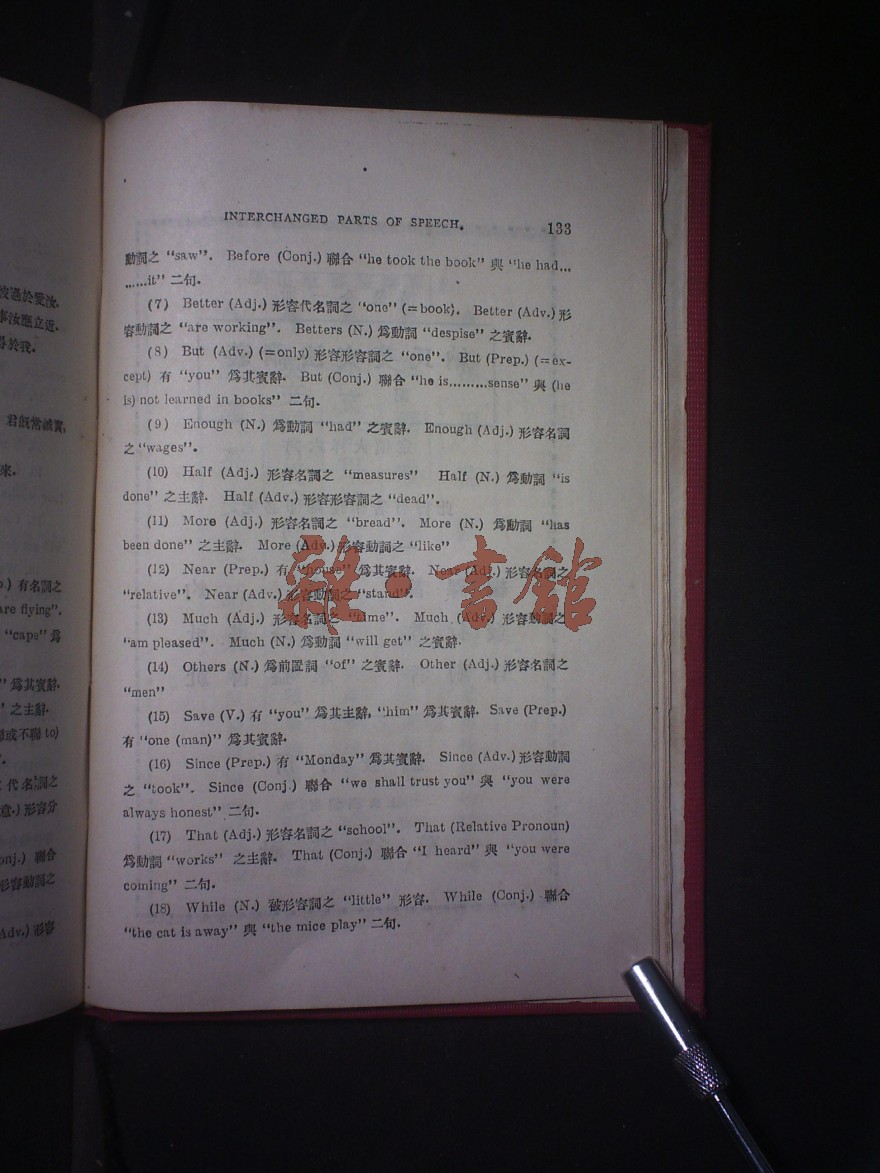 INTERCHANGED PARTS OF SPEECH. 133
動詞之 "saw". Before (Conj.) 聯合 "he took the book" 與 "he had...
......it" 二句.
(7) Better (Adj.) 形容代名詞之 "one" (=book). Better (Adv.) 形
容動詞之 "are working". Betters (N.) 爲動詞 "despise" 之賓辭.
(8) But (Adv.) (=only) 形容形容詞之 "one". But (Prep.) (=ex-
cept) 有 "you" 爲其賓辭. But (Conj.) 聯合 "he is.........sense" 與 (he
is) not learned in books" 二句.
(9) Enough (N.) 爲動詞 "had" 之賓辭. Enough (Adj.) 形容名詞
之 "wages".
(10) Half (Adj.) 形容名詞之 "measures" Half (N.) 爲動詞 "is
done" 之主辭. Half (Adv.) 形容形容詞之 "dead".
(11) More (Adj.) 形容名詞之 "bread". More (N.) 爲動詞 "has
been done" 之主辭. More (Adv.) 形容動詞之 "like"
(12) Near (Prep.) 有 "house" 爲其賓辭. Near (Adj.) 形容名詞之
"relative". Near (Adv.) 形容動詞之 "stand".
(13) Much (Adj.) 形容名詞之 "time". Much (Adv.) 形容動詞之
"am pleased". Much (N.) 爲動詞 "will get" 之賓辭.
(14) Others (N.) 爲前置詞 "of" 之賓辭. Other (Adj.) 形容名詞之
"men"
(15) Save (V.) 有 "you" 爲其主辭, "him" 爲其賓辭. Save (Prep.)
有 "one (man)" 爲其賓辭.
(16) Since (Prep.) 有 "Monday" 爲其賓辭. Since (Adv.) 形容動詞
之 "took". Since (Conj.) 聯合 "we shall trust you" 與 "you were
always honest" 二句.
(17) That (Adj.) 形容名詞之 "school". That (Relative Pronoun)
爲動詞 "works" 之主辭. That (Conj.) 聯合 "I heard" 與 "you were
coming" 二句.
(18) While (N.) 被形容詞之 "little" 形容. While (Conj.) 聯合
"the cat is away" 與 "the mice play" 二句.
雜·書館
彼過於愛汝.
事汝應立近.
於我.
君旣常誠實,
來.
.) 有名詞之
are flying".
"caps" 爲
" 爲其賓辭.
" 之主辭.
或不聯 to)
代名詞之
意.) 形容分
onj.) 聯合
形容動詞之
Adv.) 形容